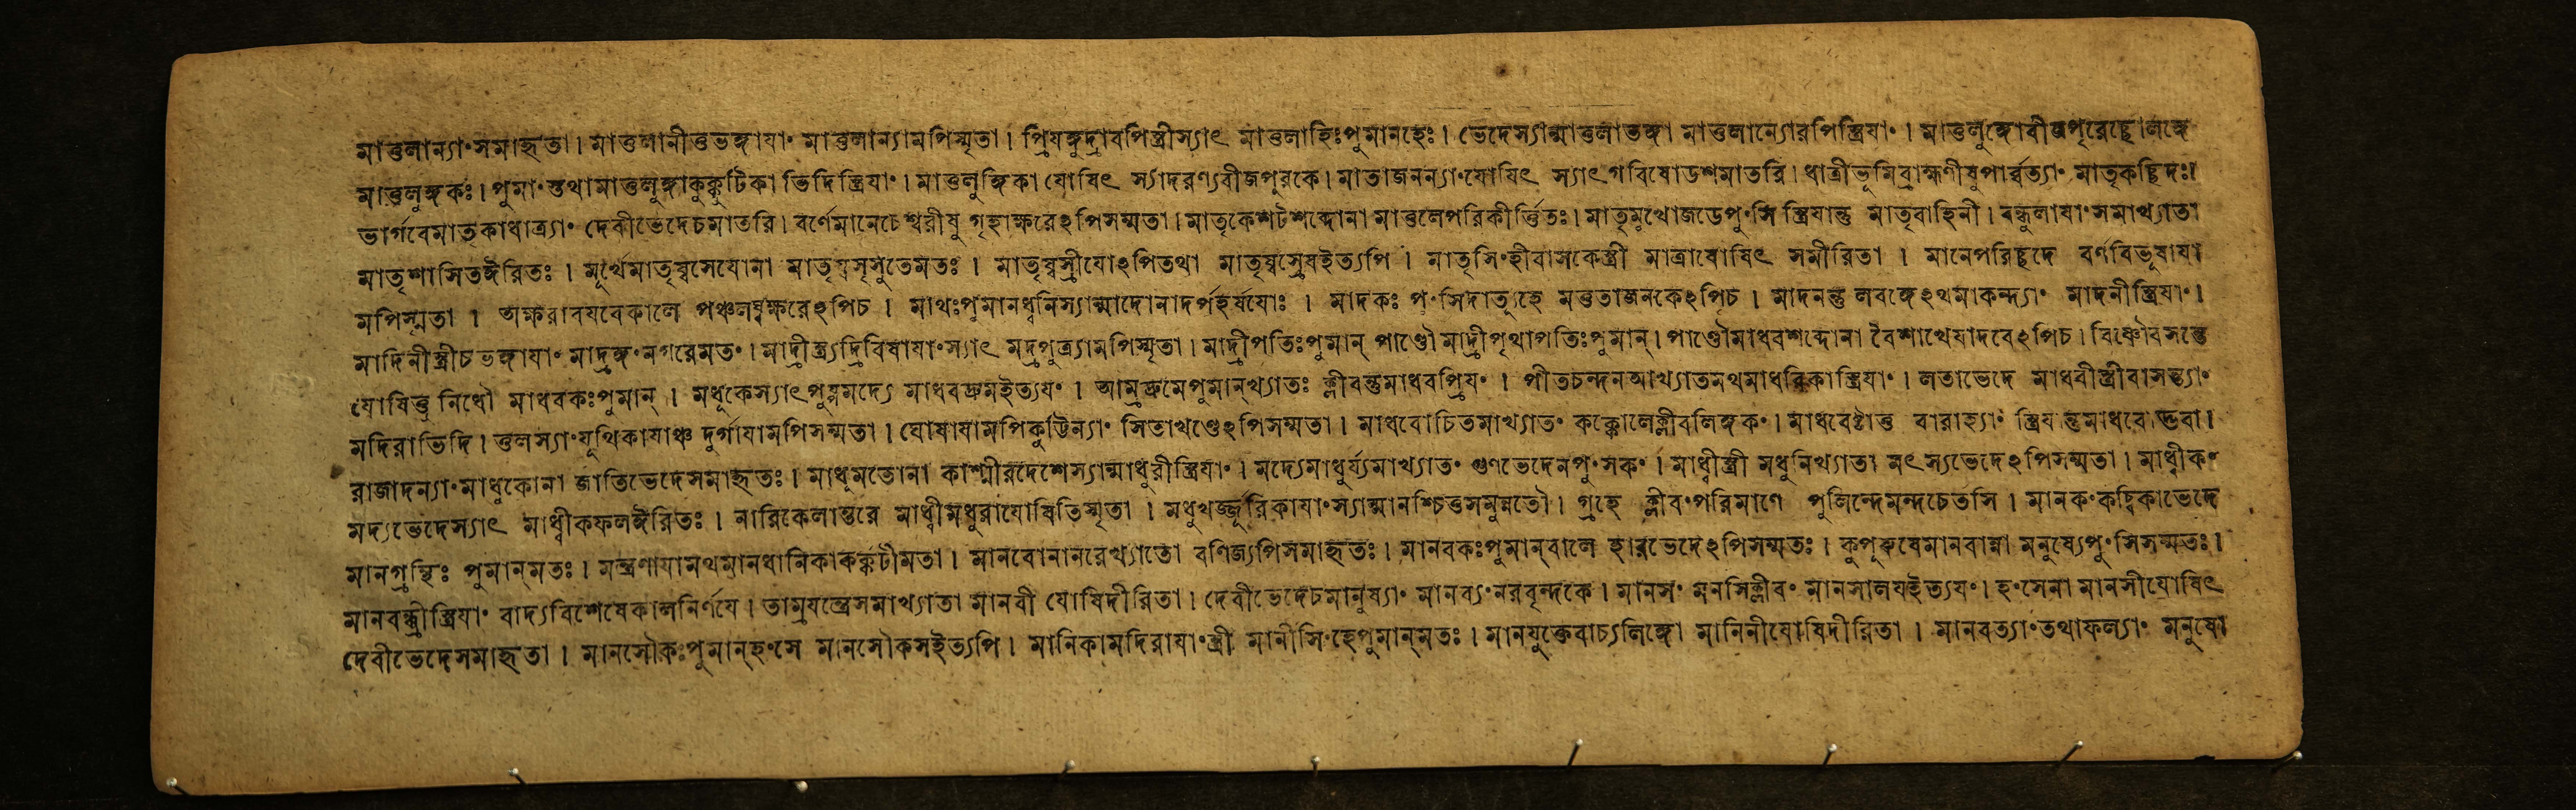 মাতুলান্যাং সমাহৃতা। মাতুলানীতুভঙ্গাযাং মাতুলান্যামপিস্মৃতা। প্রিযঙ্গুদ্রাবপিস্ত্রীস্যাৎ মাতুলাহিঃপুমানহেঃ। ভেদেস্যান্মাতুলাতঙ্গা মাতুলান্যোরপিস্ত্রিযাং। মাতুলুঙ্গোবীজপূরেচ্ছোলঙ্গে
মাতুলুঙ্গকঃ। পুমাংস্তথামাতুলুঙ্গাকুক্কুটিকা ভিদিস্ত্রিযাং। মাতুলুঙ্গিকা যোষিৎ স্যাদরণ্যবীজপূরকে। মাতাজনন্যাংযোষিৎ স্যাৎগবিষোডশমাতরি। ধাত্রীভূমিব্রাহ্মণীষুপার্ব্বত্যাং মাতৃকচ্ছিদঃ।
ভার্গবেমাতৃকাধাত্র্যাং দেবীভেদেচমাতরি। বর্ণেমানেচেশ্বরীষু গৃহাক্ষরেঽপিসম্মতা। মাতৃকেশটশব্দোনা মাতুলেপরিকীর্ত্তিতঃ। মাতৃমুখোজডেপুংসি স্ত্রিযান্তু মাতৃবাহিনী। বল্গুলাযাংসমাখ্যাতা
মাতৃশাসিতঈরিতঃ। মূর্খেমাতৃষ্বসেযোনা মাতৃষ্বসৃসুতেমতঃ। মাতৃষ্বস্রীযোঽপিতথা মাতৃষ্বস্রেযইত্যপি। মাতৃসিংহীবাসকেস্ত্রী মাত্রাযোষিৎ সমীরিতা। মানেপরিচ্ছদে বর্ণবিভূষাযা
মপিস্মৃতা। অক্ষরাবযবেকালে পঞ্চলঘ্বক্ষরেঽপিচ। মাথঃপুমানধ্বনিস্যান্মাদোনাদর্পহর্ষযোঃ। মাদকঃ পুংসিদাত্যূহে মত্ততাজনকেঽপিচ। মাদনন্তু লবঙ্গেঽথমাকন্দ্যাং মাদনীস্ত্রিযাং।
মাদিনীস্ত্রীচভঙ্গাযাং মাদ্রঙ্গংনগরেমতং। মাদ্রীস্ত্র্যদ্রিবিষাযাংস্যাৎ মদ্রপুত্র্যামপিস্মৃতা। মাদ্রীপতিঃপুমান্ পাণ্ডৌ মাদ্রীপৃথাপতিঃপুমান্। পাণ্ডৌমাধবশব্দোনা বৈশাখেযাদবেঽপিচ। বিষ্ণৌবসন্তে
যোষিত্তু নিধৌ মাধবকঃপুমান্। মধূকেস্যাৎপুষ্পমদ্যে মাধবদ্রুমইত্যযং। আম্রদ্রুমেপুমান্খ্যাতঃ ক্লীবন্তুমাধবপ্রিযং। পীতচন্দনআখ্যাতমথমাধবিকাস্ত্রিযাং। লতাভেদে মাধবীস্ত্রীবাসন্ত্যাং
মদিরাভিদি। তুলস্যাংযূথিকাযাঞ্চ দুর্গাযামপিসম্মতা। ঘোষাযামপিকুট্টিন্যাং সিতাখণ্ডেঽপিসম্মতা। মাধবোচিতমাখ্যাতং কক্কোলেক্লীবলিঙ্গকং। মাধবেষ্টাতু বারাহ্যাং স্ত্রিযান্তুমাধবোদ্ভবা।
রাজাদন্যাংমাধুকোনা জাতিভেদেসমাহৃতঃ। মাধুমতোনা কাশ্মীরদেশেস্যান্মাধুরীস্ত্রিযাং। মদ্যেমাধুর্য্যমাখ্যাতং গুণভেদেনপুংসকং। মাধ্বীস্ত্রী মধুনিখ্যাতা মৎস্যভেদেঽপিসম্মতা। মাধ্বীকং
মদ্যভেদেস্যাৎ মাধ্বীকফলঈরিতঃ। নারিকেলান্তরে মাধ্বীমধুরাযোষিতিস্মৃতা। মধুখর্জ্জূরিকাযাংস্যান্মানশ্চিত্তসমুন্নতৌ। গ্রহে ক্লীবংপরিমাণে পুলিন্দেমন্দচেতসি। মানকংকচ্বিকাভেদে
মানগ্রন্থিঃ পুমান্মতঃ। মন্ত্রণাযামথমানধানিকাকর্ক্কটীমতা। মানবোনানরেখ্যাতো বণিজ্যপিসমাহৃতঃ। মানবকঃপুমান্বালে হারভেদেঽপিসম্মতঃ। কুপুরুষেমানবান্না মনুষ্যেপুংসিসম্মতঃ।
মানরন্ধ্রীস্ত্রিযাং বাদ্যবিশেষেকালনির্ণযে। তাম্রযন্ত্রেসমাখ্যাতা মানবী যোষিদীরিতা। দেবীভেদেচমানুষ্যাং মানব্যংনরবৃন্দকে। মানসং মনসিক্লীবং মানসালযইত্যযং। হংসেনা মানসীযোষিৎ
দেবীভেদেসমাহৃতা। মানসৌকঃপুমান্হংসে মানসৌকসইত্যপি। মানিকামদিরাযাংস্ত্রী মানীসিংহেপুমান্মতঃ। মানযুক্তেবাচ্যলিঙ্গো মানিনীযোষিদীরিতা। মানবত্যাংতথাফল্যাং মনুষো